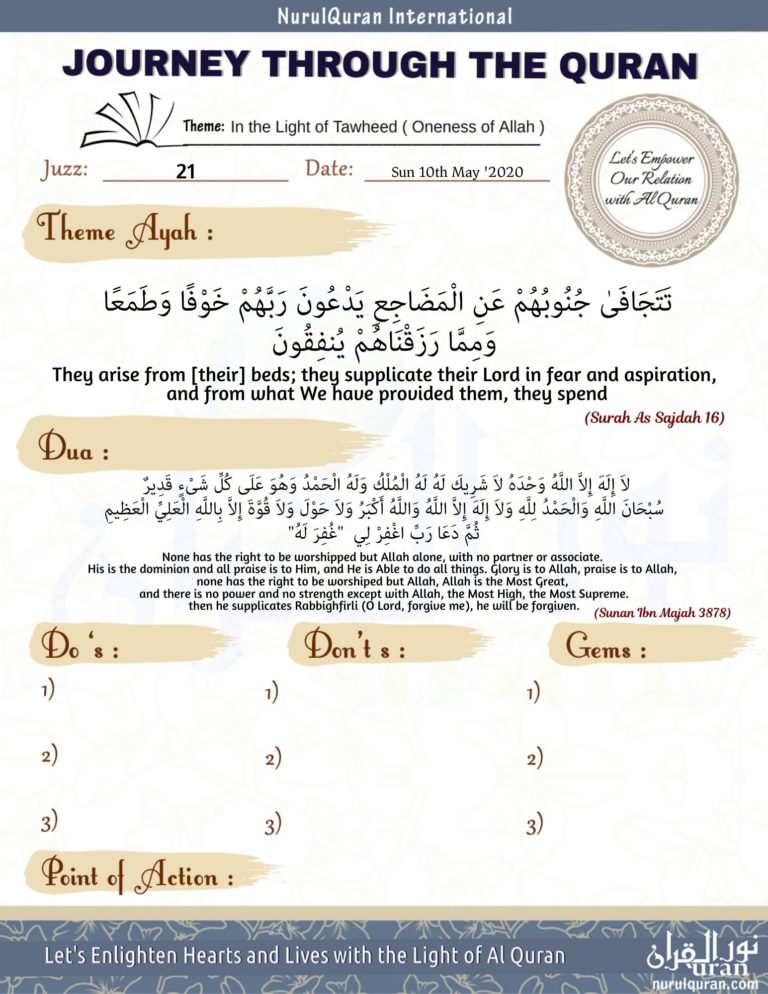 NurulQuran International
JOURNEY THROUGH THE QURAN
Theme: In the Light of Tawheed ( Oneness of Allah )
Juzz: 21 Date: Sun 10th May '2020
Let's Empower
Our Relation
with Al Quran
Theme Ayah :
تَتَجَافَىٰ جُنُوبُهُمْ عَنِ الْمَضَاجِعِ يَدْعُونَ رَبَّهُمْ خَوْفًا وَطَمَعًا
وَمِمَّا رَزَقْنَاهُمْ يُنفِقُونَ
They arise from [their] beds; they supplicate their Lord in fear and aspiration,
and from what We have provided them, they spend
(Surah As Sajdah 16)
Dua :
لاَ إِلَهَ إِلاَّ اللَّهُ وَحْدَهُ لاَ شَرِيكَ لَهُ لَهُ الْمُلْكُ وَلَهُ الْحَمْدُ وَهُوَ عَلَى كُلِّ شَىْءٍ قَدِيرٌ
سُبْحَانَ اللَّهِ وَالْحَمْدُ لِلَّهِ وَلاَ إِلَهَ إِلاَّ اللَّهُ وَاللَّهُ أَكْبَرُ وَلاَ حَوْلَ وَلاَ قُوَّةَ إِلاَّ بِاللَّهِ الْعَلِيِّ الْعَظِيمِ
ثُمَّ دَعَا رَبِّ اغْفِرْ لِي "غُفِرَ لَهُ"
None has the right to be worshipped but Allah alone, with no partner or associate.
His is the dominion and all praise is to Him, and He is Able to do all things. Glory is to Allah, praise is to Allah,
none has the right to be worshiped but Allah, Allah is the Most Great,
and there is no power and no strength except with Allah, the Most High, the Most Supreme.
then he supplicates Rabbighfirli (O Lord, forgive me), he will be forgiven.
(Sunan Ibn Majah 3878)
Do 's : Don't s : Gems :
1) 1) 1)
2) 2) 2)
3) 3) 3)
Point of Action :
Let's Enlighten Hearts and Lives with the Light of Al Quran
نور القرآن
uran
nurulquran.com